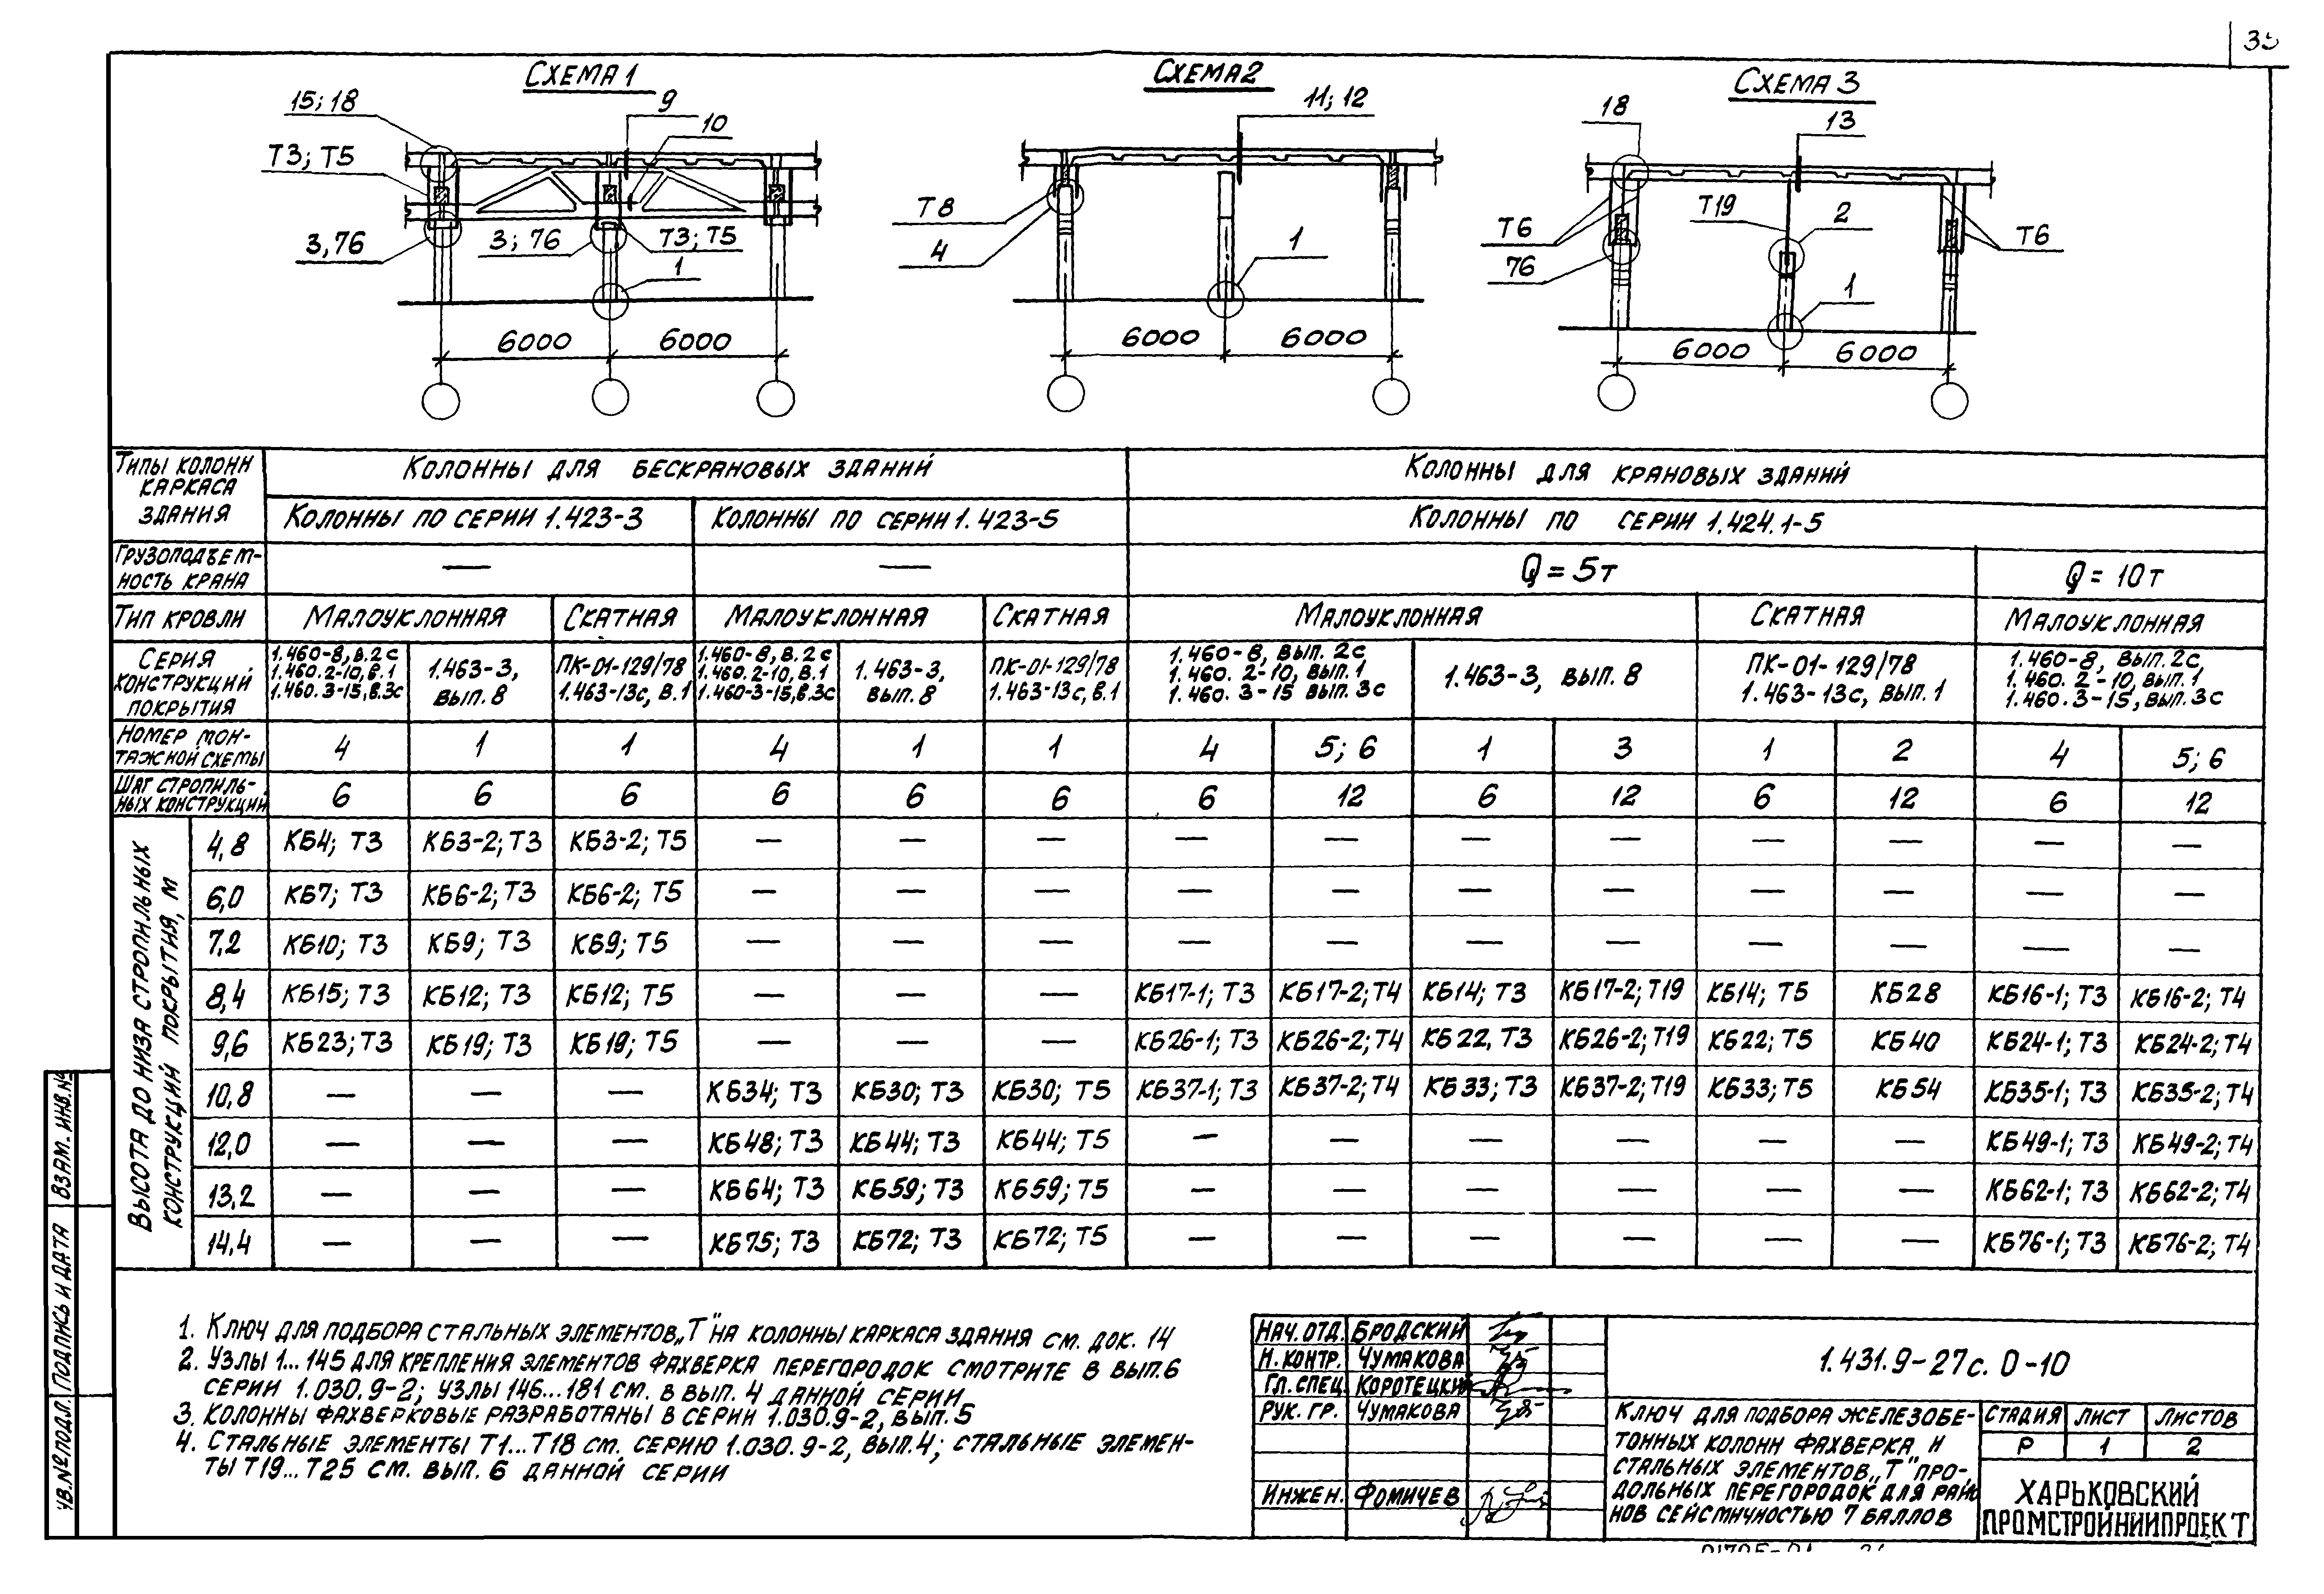 Схема 1
15; 18
9
10
Т3; Т5
3,76
3; 76
Т3; Т5
1
6000
6000
Схема 2
11; 12
Т8
4
1
6000
6000
Схема 3
18
13
Т19
2
Т6
Т6
76
1
6000
6000
Типы колонн каркаса здания
Колонны для бескрановых зданий
Колонны для крановых зданий
Колонны по серии 1.423-3
Колонны по серии 1.423-5
Колонны по серии 1.424.1-5
Грузоподъем-
ность крана
—
—
Q = 5т
Q = 10т
Тип кровли
Малоуклонная
Скатная
Малоуклонная
Скатная
Малоуклонная
Скатная
Малоуклонная
Серия
конструкций
покрытия
1.460-8, в.2с
1.460.2-10, в.1
1.460.3-15, в.3с
1.463-3,
вып. 8
ПК-01-129/78
1.463-13с, в.1
1.460-8, в.2с
1.460.2-10, в.1
1.460-3-15, в.3с
1.463-3,
вып. 8
ПК-01-129/78
1.463-13с, в.1
1.460-8, вып. 2с
1.460. 2-10, вып. 1
1.460. 3-15 вып. 3с
1.463-3, вып. 8
ПК-01-129/78
1.463-13с, вып. 1
1.460-8, вып. 2с,
1.460. 2-10, вып. 1
1.460. 3-15, вып. 3с
Номер мон-
тажной схемы
4 1 1 4 1 1 4 5; 6 1 3 1 2 4 5; 6
Шаг стропиль-
ных конструкций
6 6 6 6 6 6 6 12 6 12 6 12 6 12
Высота до низа стропильных
конструкций покрытия, м
4,8 КБ4; Т3 КБ3-2; Т3 КБ3-2; Т5 — — — — — — — — — — —
6,0 КБ7; Т3 КБ6-2; Т3 КБ6-2; Т5 — — — — — — — — — — —
7,2 КБ10; Т3 КБ9; Т3 КБ9; Т5 — — — — — — — — — — —
8,4 КБ15; Т3 КБ12; Т3 КБ12; Т5 — — — КБ17-1; Т3 КБ17-2; Т4 КБ14; Т3 КБ17-2; Т19 КБ14; Т5 КБ28 КБ16-1; Т3 КБ16-2; Т4
9,6 КБ23; Т3 КБ19; Т3 КБ19; Т5 — — — КБ26-1; Т3 КБ26-2; Т4 КБ22, Т3 КБ26-2; Т19 КБ22; Т5 КБ40 КБ24-1; Т3 КБ24-2; Т4
10,8 — — — КБ34; Т3 КБ30; Т3 КБ30; Т5 КБ37-1; Т3 КБ37-2; Т4 КБ33; Т3 КБ37-2; Т19 КБ33; Т5 КБ54 КБ35-1; Т3 КБ35-2; Т4
12,0 — — — КБ48; Т3 КБ44; Т3 КБ44; Т5 — — — — — — КБ49-1; Т3 КБ49-2; Т4
13,2 — — — КБ64; Т3 КБ59; Т3 КБ59; Т5 — — — — — — КБ62-1; Т3 КБ62-2; Т4
14,4 — — — КБ75; Т3 КБ72; Т3 КБ72; Т5 — — — — — — КБ76-1; Т3 КБ76-2; Т4
1. Ключ для подбора стальных элементов „Т" на колонны каркаса здания см. док. 14
2. Узлы 1... 145 для крепления элементов фахверка перегородок смотрите в вып. 6
серии 1.030.9-2; узлы 146...181 см. в вып. 4 данной серии
3. Колонны фахверковые разработаны в серии 1.030.9-2, вып. 5
4. Стальные элементы Т1...Т18 см. серию 1.030.9-2, вып. 4; стальные элемен-
ты Т19... Т25 см. вып. 6 данной серии
Нач. отд. Бродский
Н. контр. Чумакова
Гл. спец. Коротецкий
Рук. гр. Чумакова
Инжен. Фомичев
1.431.9-27с. 0-10
Ключ для подбора железобе-
тонных колонн фахверка и
стальных элементов „Т" про-
дольных перегородок для райо
нов сейсмичностью 7 баллов
Стадия Лист Листов
Р 1 2
Харьковский
Промстройниипроект
Взам. инв. №
Подпись и дата